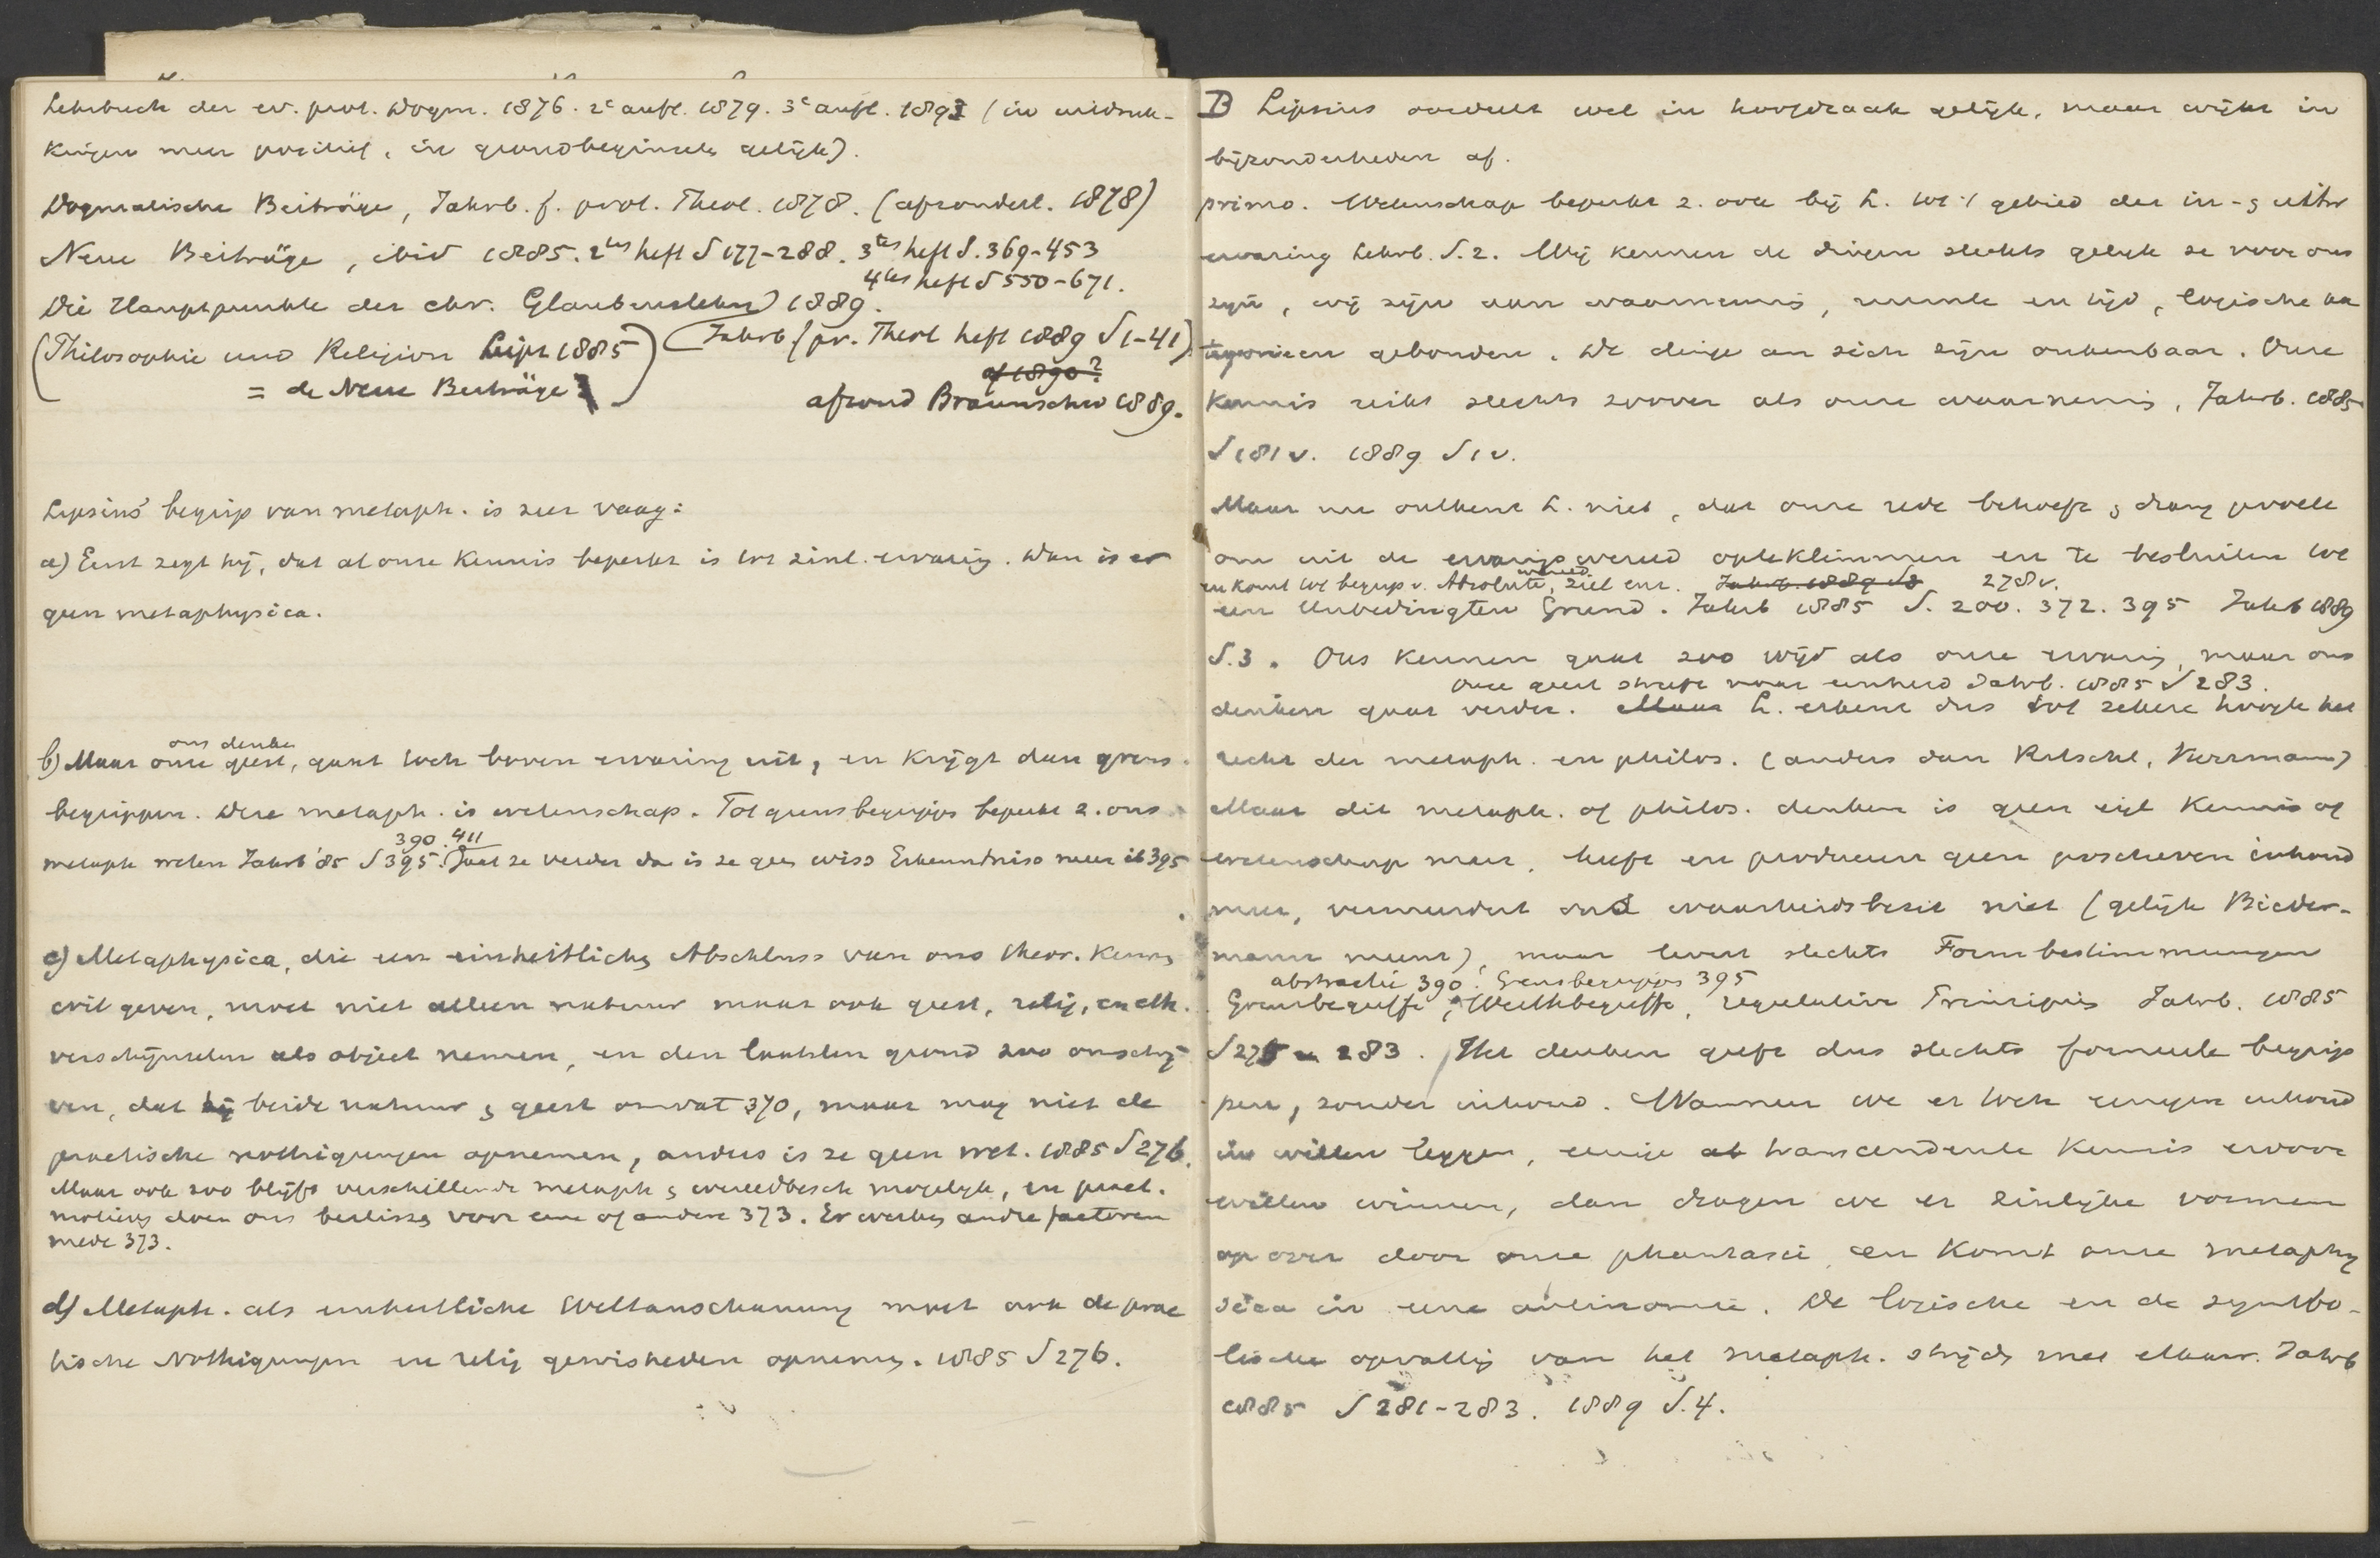 Lehrbuch der ev. prot. Dogm. 1876. 2e aufl. 1879. 3e aufl. 1893 (in uitdruk-
kingen meer positief, in grondbeginsels gelijk).
Dogmatische Beiträge, Jahrb. f. prot. Theol. 1878. (afzonderl. 1878)
Neue Beiträge, ibid 1885. 2tes heft S 177-288. 3tes heft S. 369-453
4tes heft S 550-671.
Die Hauptpunkte der chr. Glaubenslehre 1889.
Jahrb f pr. Theol heft 1889 S 1-41)
(Philosophie und Religion Leipz 1885)
of 1890?
= de Neue Beiträge
afzond Braunschw 1889.
Lipsius' begrip van metaph. is zeer vaag:
a) Eerst zegt hij, dat al onze kennis beperkt is tot zinl. ervaring. Dan is er
geen metaphysica.
ons denken
b) Maar onze geest, gaat toch boven ervaring uit, en krijgt dan grens-
begrippen. Deze metaph. is wetenschap. Tot grensbegrippen beperkt z. ons
390. 411
metaph weten Jahrb '85 S 395. Gaat ze verder dan is ze geen wiss Erkenntniss meer ib 395
c) Metaphysica, die een einheitliches Abschluss van ons theor. kennen
wil geven, moet niet alleen natuur maar ook geest, relig, en eth.
verschijnselen als object nemen, en den laatsten grond zoo omschrij-
ven, dat hij beide natuur & geest omvat 370, maar mag niet de
practische nöthigungen opnemen, anders is ze geen wet. 1885 S 276.
Maar ook zoo blijft verschillende metaph & wereldbesch mogelijk, en pract.
motieven doen ons beslissen voor eene of andere 373. Er werken andre factoren
mede 373.
d) Metaph. als einheitliche Weltanschauung moet ook de prac
tische Nöthigungen en relig gewisheden opnemen. 1885 S 276.
B Lipsius oordeelt wel in hoofdzaak gelijk, maar wijkt in
bijzonderheden af.
primo. Wetenschap beperkt z. ook bij L. tot 't gebied der in- & uitw
ervaring Lehrb. S. 2. Wij kennen de dingen slechts gelijk ze voor ons
zijn, wij zijn aan waarneming, ruimte en tijd, logische ka
tegorieen gebonden. De dinge an sich zijn onkenbaar. Onze
kennis reikt slechts zoover als onze waarneming, Jahrb. 1885
S 181 v. 1889 S 1 v.
Maar nu ontkent L. niet, dat onze rede behoefte & drang gevoelt
om uit de ervaringswereld op te klimmen en te besluiten tot
wereld
en komt tot begrip v. Absolute, ziel enz. Jahrb. 1889 S 8 278 v.
een Unbedingten Grund. Jahrb 1885 S. 200. 372. 395 Jahrb 1889
S. 3. Ons kennen gaat zoo wijd als onze ervaring, maar ons
Onze geest streeft naar eenheid Jahrb. 1885 S 283.
denken gaat verder. Maar L. erkent dus tot zekere hoogte het
recht der metaph. en philos. (anders dan Ritschl, Herrmann)
Maar dit metaph. of philos. denken is geen eigl kennis of
wetenschap meer, heeft en produceert geen positieven inhoud
meer, vermeerdert ons waarheidsbezit niet (gelijk Bieder-
mann meent), maar levert slechts Formbestimmungen
abstractie 390. Grensbegrippen 395
Grenzbegriffe, Werthbegriffe, regulative Principien Jahrb. 1885
S 275 en 283. Het denken geeft dus slechts formeele begrip
pen, zonder inhoud. Wanneer we er toch eenigen inhoud
in willen leggen, eenige transcendente kennis ervoor
willen winnen, dan dragen we er zinlijke vormen
op over door onze phantasie en komt onze metaphy
sica in eene antinomie. De logische en de symbo-
lische opvatting van het metaph. strijdt met elkaar. Jahrb
1885 S 281-283. 1889 S. 4.